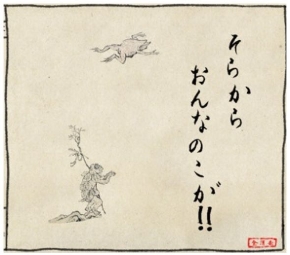 そらから
おんなのこが!!